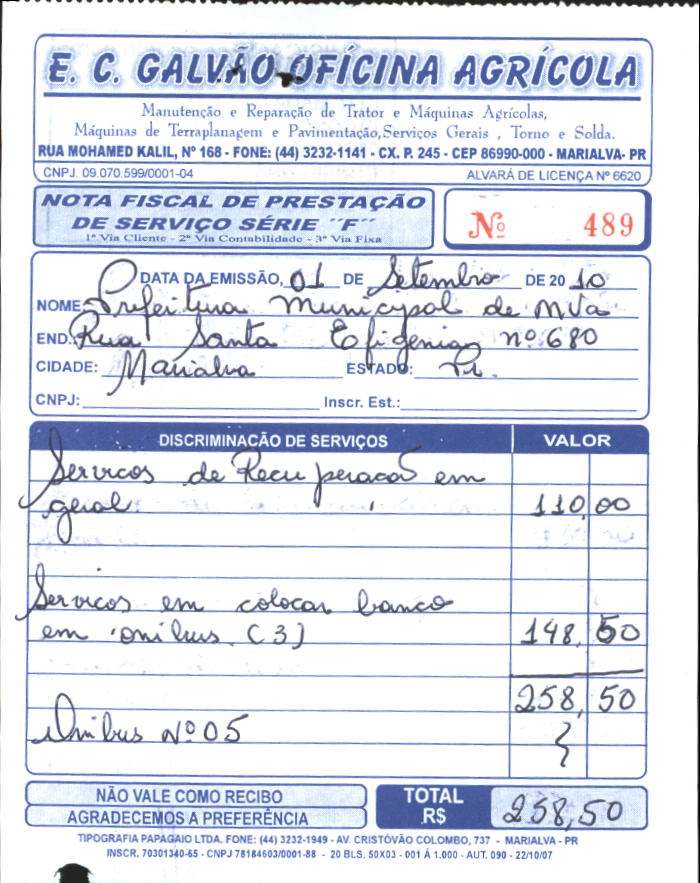 E. C. GALVÃO OFÍCINA AGRÍCOLA
Manutenção e Reparação de Trator e Máquinas Agrícolas,
Máquinas de Terraplanagem e Pavimentação,Serviços Gerais , Torno e Solda.
RUA MOHAMED KALIL, Nº 168 - FONE: (44) 3232-1141 - CX. P. 245 - CEP 86990-000 - MARIALVA- PR
CNPJ. 09.070.599/0001-04 ALVARÁ DE LICENÇA Nº 6620
NOTA FISCAL DE PRESTAÇÃO
DE SERVIÇO SÉRIE ´´F´´
1ª Via Cliente - 2ª Via Contabilidade - 3ª Via Fixa
Nº 489
DATA DA EMISSÃO, 01 DE Setembro DE 20 10
NOME: Prefeitura Municipal de MVa
END.: Rua Santa Efigenia nº 680
CIDADE: Marialva ESTADO: Pr.
CNPJ: Inscr. Est.:
DISCRIMINAÇÃO DE SERVIÇOS VALOR
Servicos de Recuperacaõ em
geral. 110,00
Servicos em colocar banco
em onibus (3) 148,50
258,50
Onibus Nº 05
NÃO VALE COMO RECIBO
AGRADECEMOS A PREFERÊNCIA
TOTAL
R$ 258,50
TIPOGRAFIA PAPAGAIO LTDA. FONE: (44) 3232-1949 - AV. CRISTÓVÃO COLOMBO, 737 - MARIALVA - PR
INSCR. 70301340-65 - CNPJ 78184603/0001-88 - 20 BLS. 50X03 - 001 Á 1.000 - AUT. 090 - 22/10/07